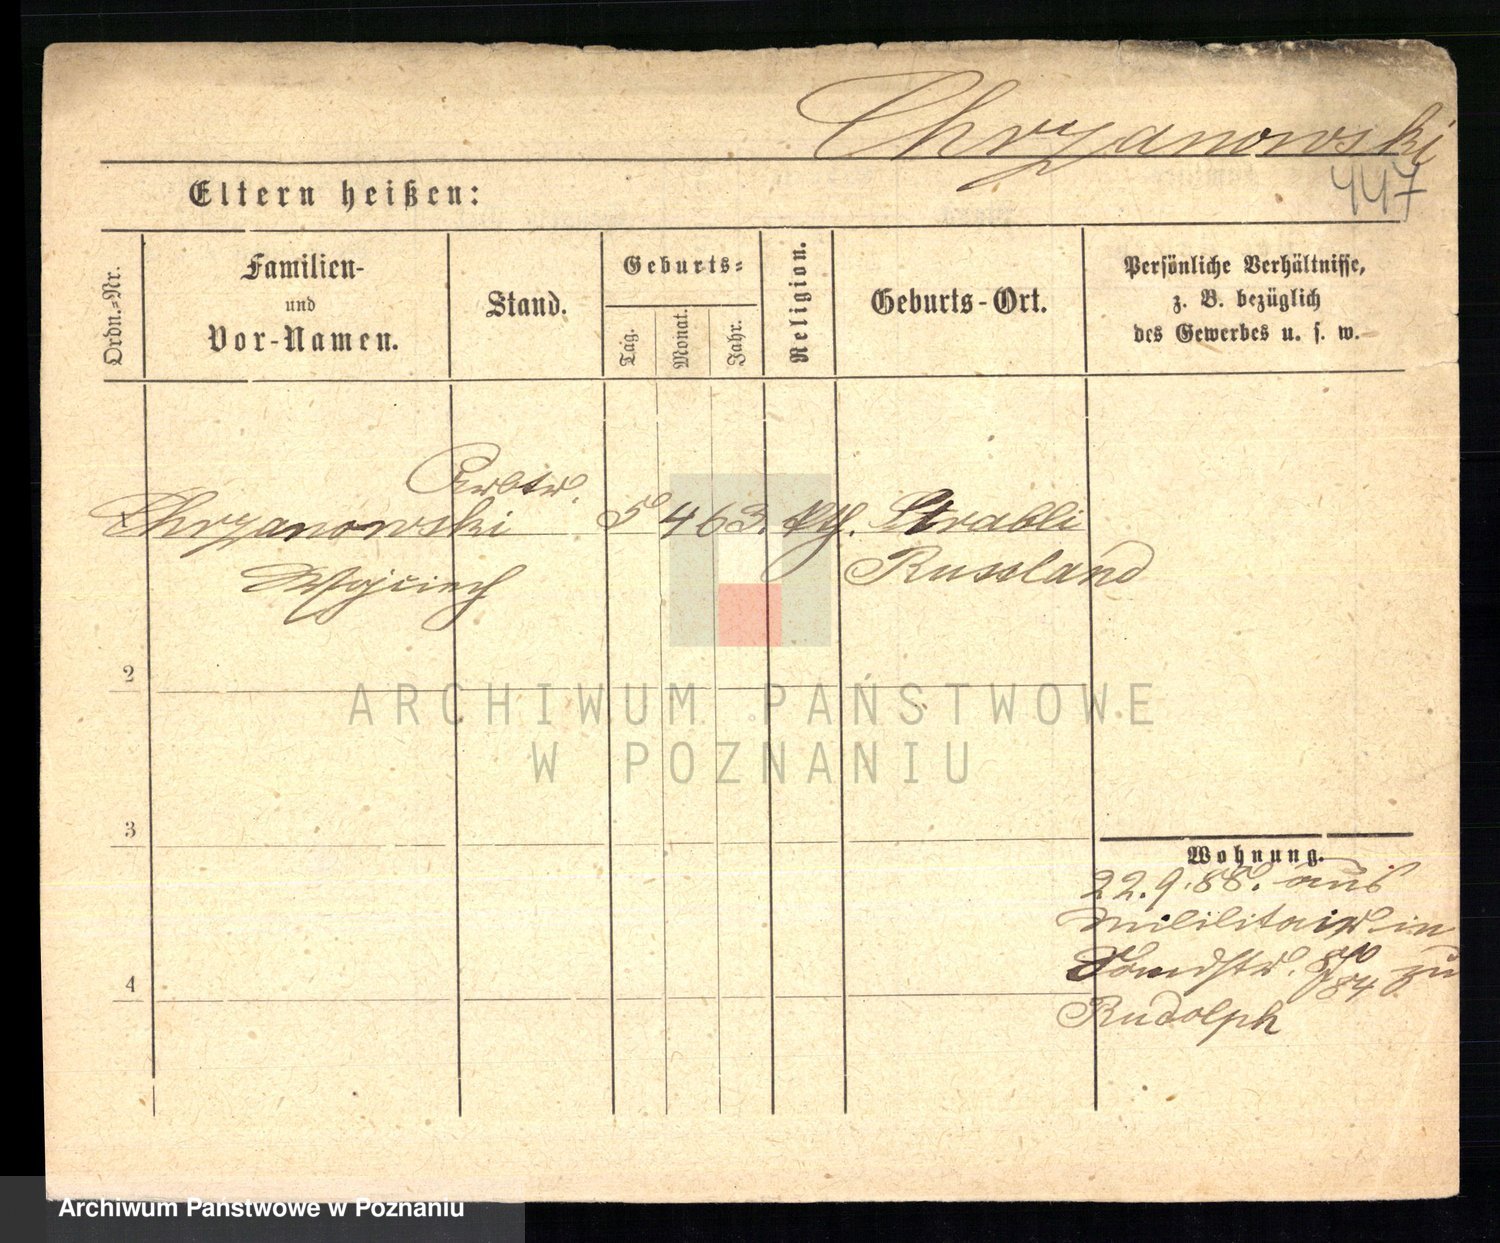 Chrzanowski
447
Eltern heißen:
Ordn.-Nr.
Familien-
und
Vor-Namen.
Stand.
Geburts-
Tag.
Monat.
Jahr.
Religion.
Geburts-Ort.
Persönliche Verhältnisse,
z. B. bezüglich
des Gewerbes u. s. w.
Chrzanowski
5 4 63. kth. Strabli
Wojciech
Russland
2
ARCHIWUM PAŃSTWOWE
W POZNANIU
3
Wohnung.
22.9.88. aus
Mililitair in
zu
4
Rudolph
Archiwum Państwowe w Poznaniu